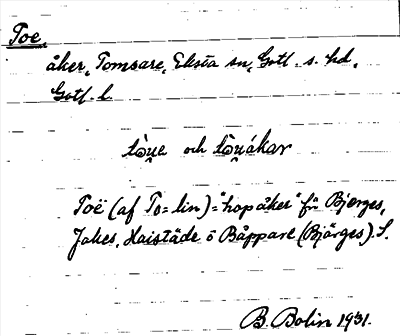 Toe,
åker, Tomsare, Eksta sn, Gotl. s. hd,
Gotl. l.
och
Toë (af To = lin) = "hopåker" för Bjerges,
Jakes, Haistäde o Båppare (Bjärges). S.
B. Bolin 1931.